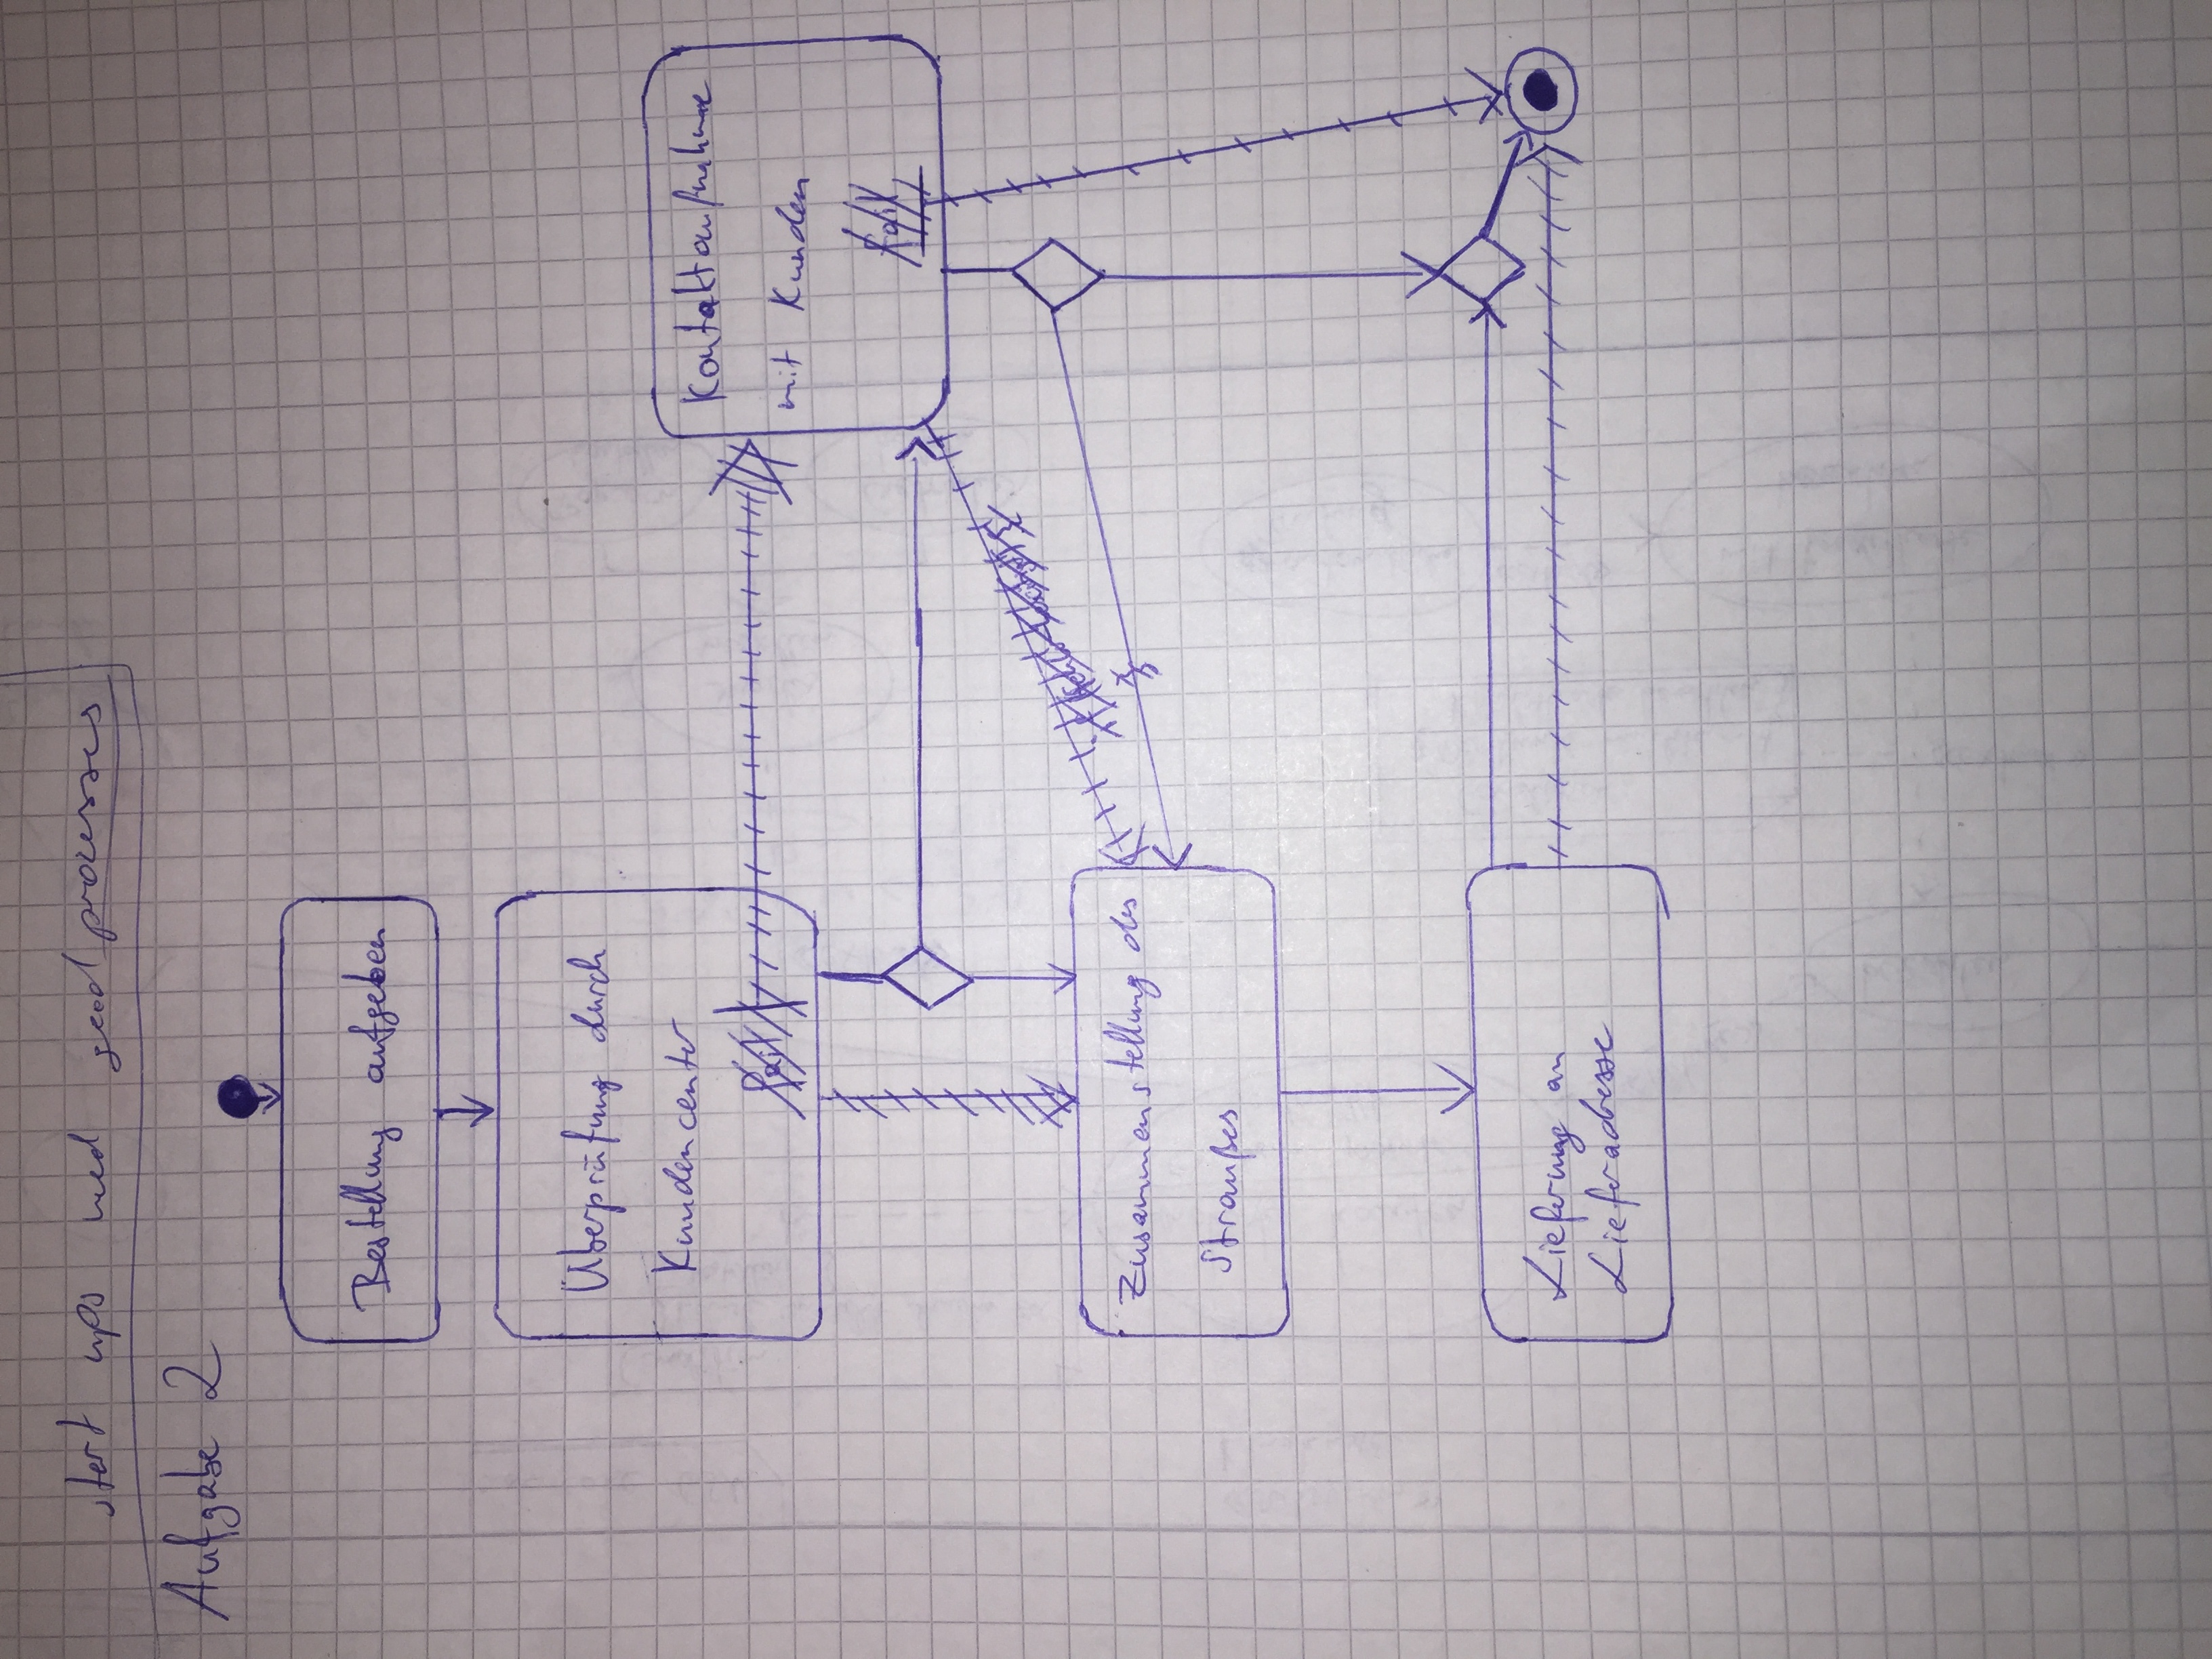 start ups need good processes
Aufgabe 2
Bestellung aufgeben
Überprüfung durch
Kundencenter
Kontaktaufnahme
mit Kunden
fail
Zusammenstellung des
Straußes
Lieferung an
Lieferadresse